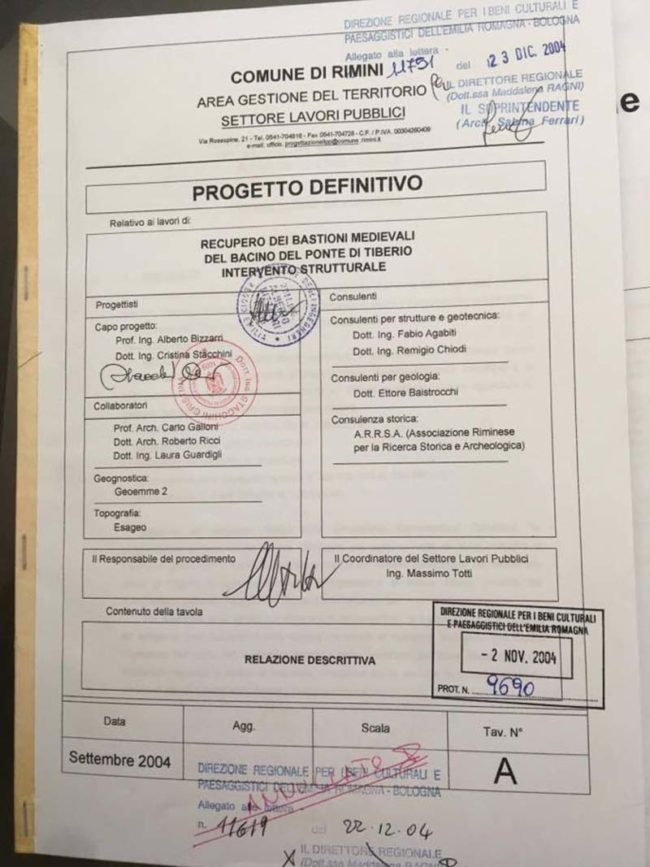 DIREZIONE REGIONALE PER I BENI CULTURALI E
PAESAGGISTICI DELL'EMILIA ROMAGNA - BOLOGNA
Allegato alla lettera
11791 del 23 DIC. 2004
IL DIRETTORE REGIONALE
(Dott.ssa Maddalena RAGNI)
IL SOPRINTENDENTE
(Arch. Sabina Ferrari)
COMUNE DI RIMINI
AREA GESTIONE DEL TERRITORIO
SETTORE LAVORI PUBBLICI
Via Rosaspina, 21 - Tel. 0541-704816 - Fax 0541-704728 - C.F. / P.IVA. 00304260409
e-mail: ufficio. progettazionellpp@comune .rimini.it
e
PROGETTO DEFINITIVO
Relativo ai lavori di:
RECUPERO DEI BASTIONI MEDIEVALI
DEL BACINO DEL PONTE DI TIBERIO
INTERVENTO STRUTTURALE
Progettisti
Capo progetto:
Prof. Ing. Alberto Bizzarri
Dott. Ing. Cristina Stacchini
Collaboratori
Prof. Arch. Carlo Galloni
Dott. Arch. Roberto Ricci
Dott. Ing. Laura Guardigli
Geognostica:
Geoemme 2
Topografia:
Esageo
Consulenti
Consulenti per strutture e geotecnica:
Dott. Ing. Fabio Agabiti
Dott. Ing. Remigio Chiodi
Consulenti per geologia:
Dott. Ettore Baistrocchi
Consulenza storica:
A.R.R.S.A. (Associazione Riminese
per la Ricerca Storica e Archeologica)
Il Responsabile del procedimento
Il Coordinatore del Settore Lavori Pubblici
Ing. Massimo Totti
Contenuto della tavola
RELAZIONE DESCRITTIVA
DIREZIONE REGIONALE PER I BENI CULTURALI
E PAESAGGISTICI DELL'EMILIA ROMAGNA
- 2 NOV. 2004
PROT. N. 9690
Data
Agg.
Scala
Tav. N°
Settembre 2004
A
DIREZIONE REGIONALE PER I BENI CULTURALI E
PAESAGGISTICI DELL'EMILIA ROMAGNA - BOLOGNA
ANNULLATO
Allegato alla lettera
n. 11619 del 22.12.04
X IL DIRETTORE REGIONALE
(Dott.ssa Maddalena RAGNI)